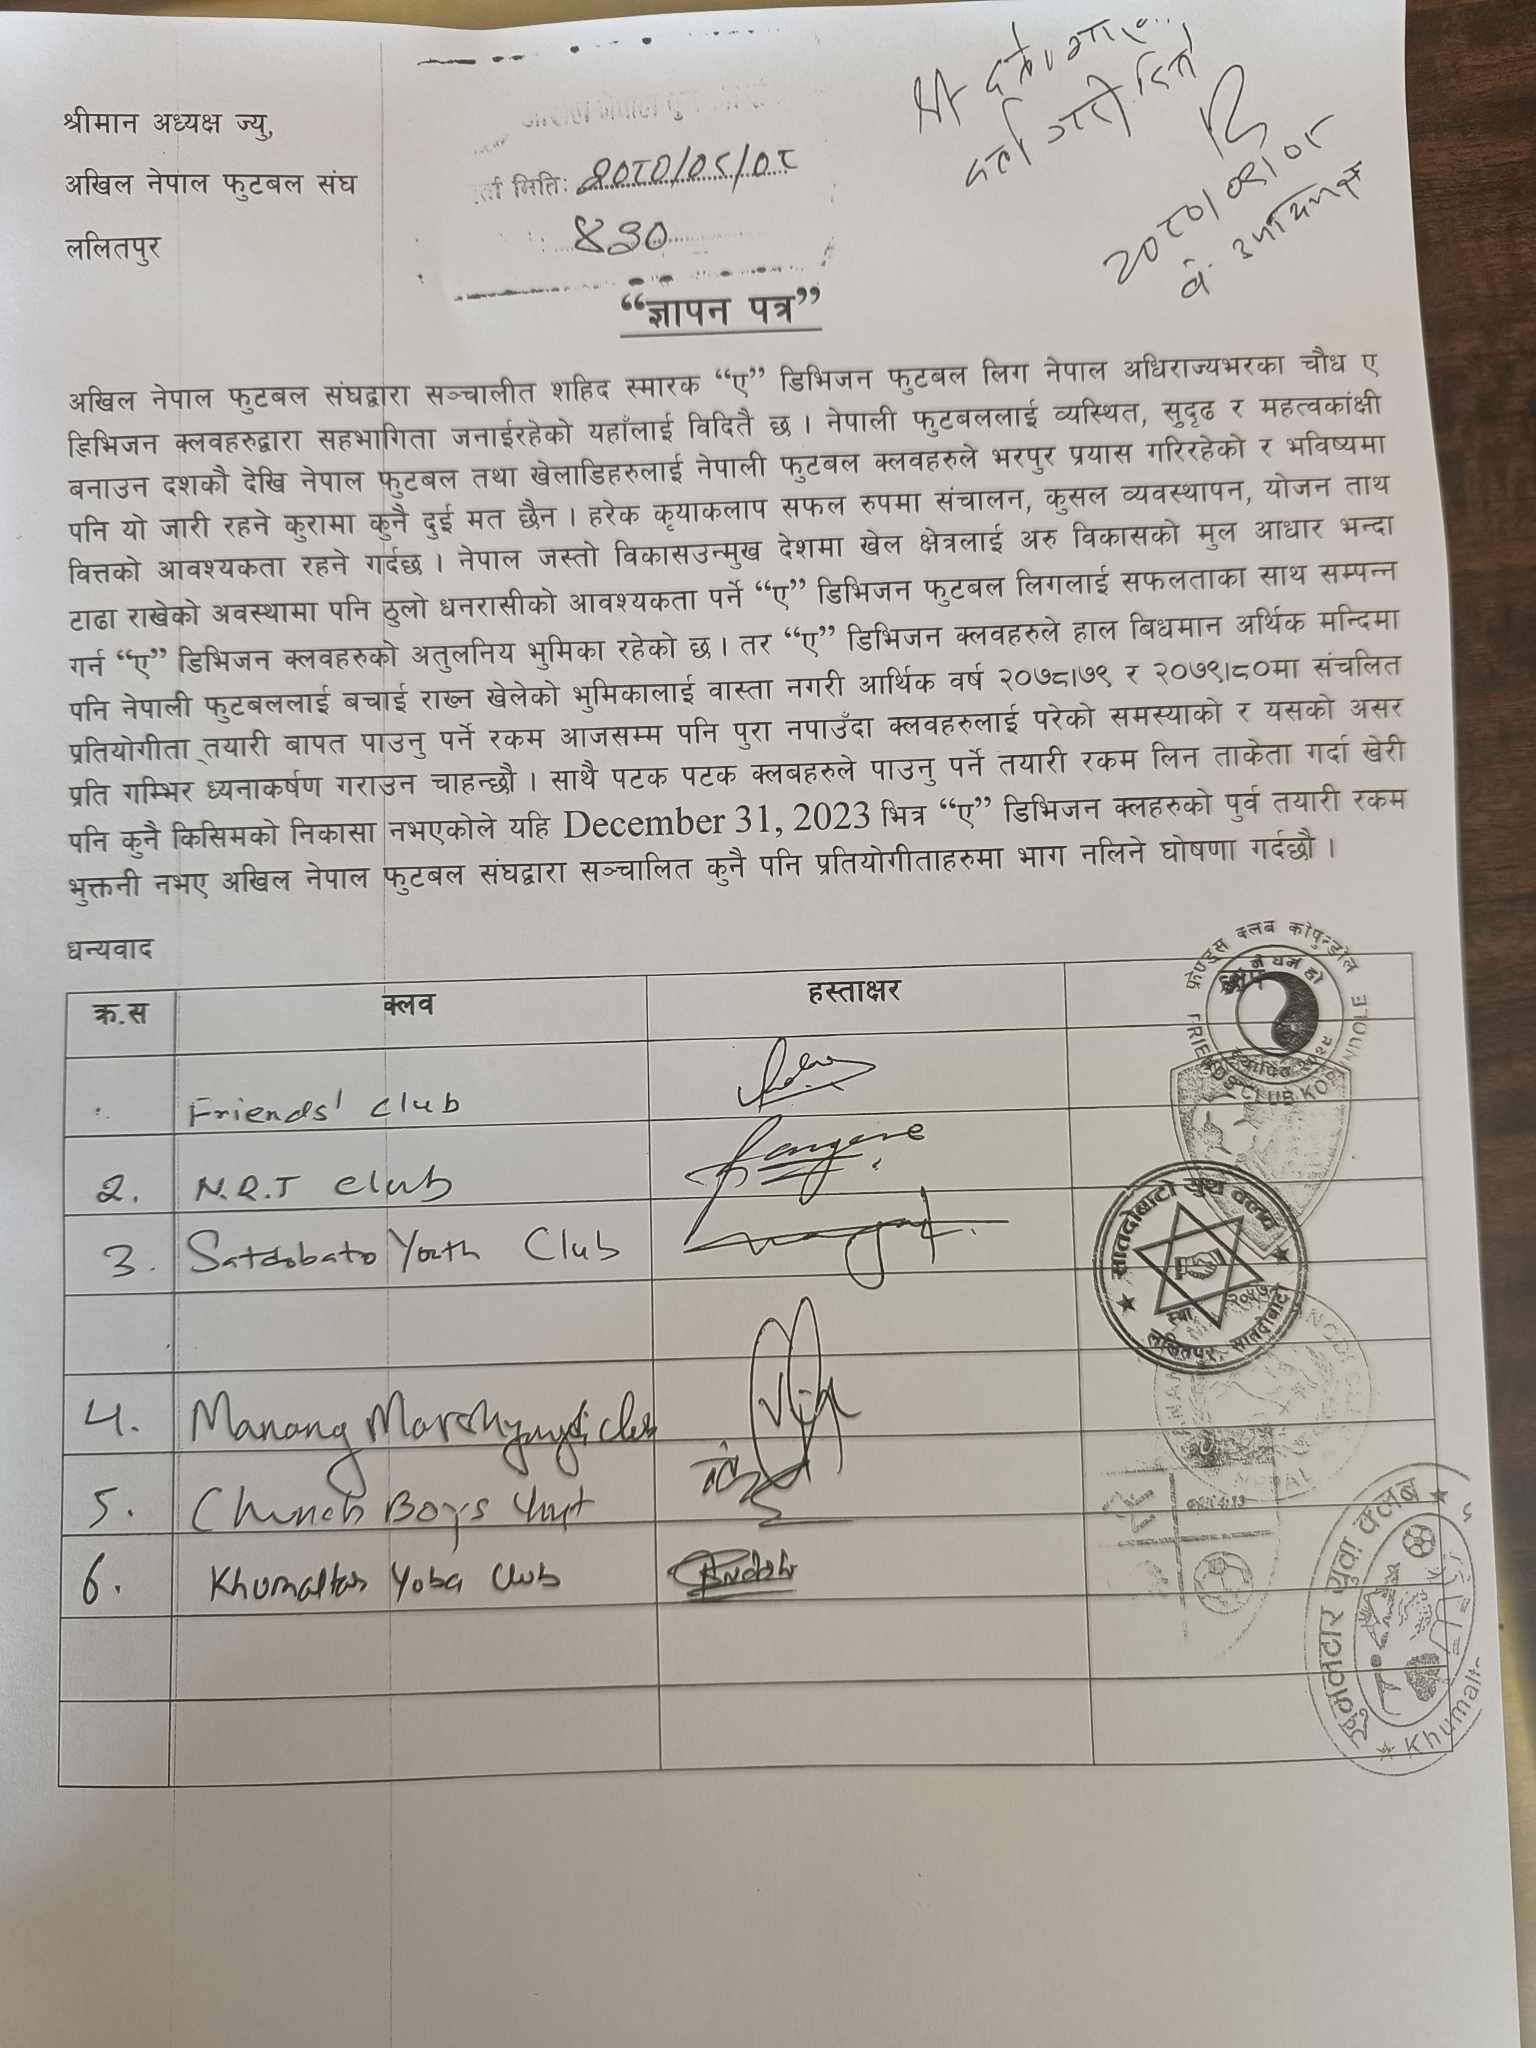 श्रीमान अध्यक्ष ज्यु,
अखिल नेपाल फुटबल संघ
ललितपुर
र्ता मिति: २०८०/०९/०८
४३०
दर्ता गरी दिने
२०८०/०९/०८
“ज्ञापन पत्र”
अखिल नेपाल फुटबल संघद्वारा सञ्चालीत शहिद स्मारक “ए” डिभिजन फुटबल लिग नेपाल अधिराज्यभरका चौध ए
डिभिजन क्लवहरुद्वारा सहभागिता जनाईरहेको यहाँलाई विदितै छ । नेपाली फुटबललाई व्यस्थित, सुदृढ र महत्वकांक्षी
बनाउन दशकौ देखि नेपाल फुटबल तथा खेलाडिहरुलाई नेपाली फुटबल क्लवहरुले भरपुर प्रयास गरिरहेको र भविष्यमा
पनि यो जारी रहने कुरामा कुनै दुई मत छैन । हरेक कृयाकलाप सफल रुपमा संचालन, कुसल व्यवस्थापन, योजन ताथ
वित्तको आवश्यकता रहने गर्दछ । नेपाल जस्तो विकासउन्मुख देशमा खेल क्षेत्रलाई अरु विकासको मुल आधार भन्दा
टाढा राखेको अवस्थामा पनि ठुलो धनरासीको आवश्यकता पर्ने “ए” डिभिजन फुटबल लिगलाई सफलताका साथ सम्पन्न
गर्न “ए” डिभिजन क्लवहरुको अतुलनिय भुमिका रहेको छ । तर “ए” डिभिजन क्लवहरुले हाल बिधमान अर्थिक मन्दिमा
पनि नेपाली फुटबललाई बचाई राख्न खेलेको भुमिकालाई वास्ता नगरी आर्थिक वर्ष २०७८।७९ र २०७९।८०मा संचलित
प्रतियोगीता तयारी बापत पाउनु पर्ने रकम आजसम्म पनि पुरा नपाउँदा क्लवहरुलाई परेको समस्याको र यसको असर
प्रति गम्भिर ध्यनाकर्षण गराउन चाहन्छौ । साथै पटक पटक क्लबहरुले पाउनु पर्ने तयारी रकम लिन ताकेता गर्दा खेरी
पनि कुनै किसिमको निकासा नभएकोले यहि December 31, 2023 भित्र “ए” डिभिजन क्लहरुको पुर्व तयारी रकम
भुक्तनी नभए अखिल नेपाल फुटबल संघद्वारा सञ्चालित कुनै पनि प्रतियोगीताहरुमा भाग नलिने घोषणा गर्दछौ ।
धन्यवाद
क्र.स क्लव हस्ताक्षर
फ्रेण्ड्स क्लब कोपुन्डोल
Friends' Club
2. N.R.T Club
3. Satdobato Youth Club
सातदोबाटो युथ क्लव
ललितपुर, सातदोबाटो
4. Manang Marshyangdi Club
5. Church Boys
6. Khumaltar Yuba Club
खुमलटार युवा क्लब